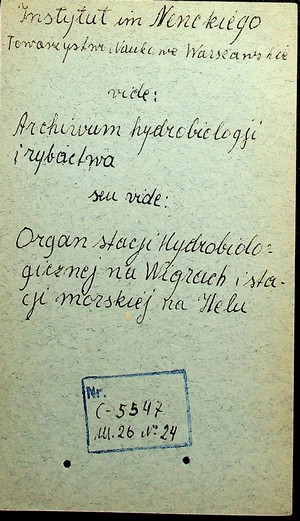 Instytut im Nenckiego
Towarzystwo Naukowe Warszawskie
vide:
Archiwum hydrobiologji
i rybactwa
seu vide:
Organ stacji Hydrobiolo=
gicznej na Wigrach i sta-
cji morskiej na Helu
Nr.
C-5547
III.26 № 24